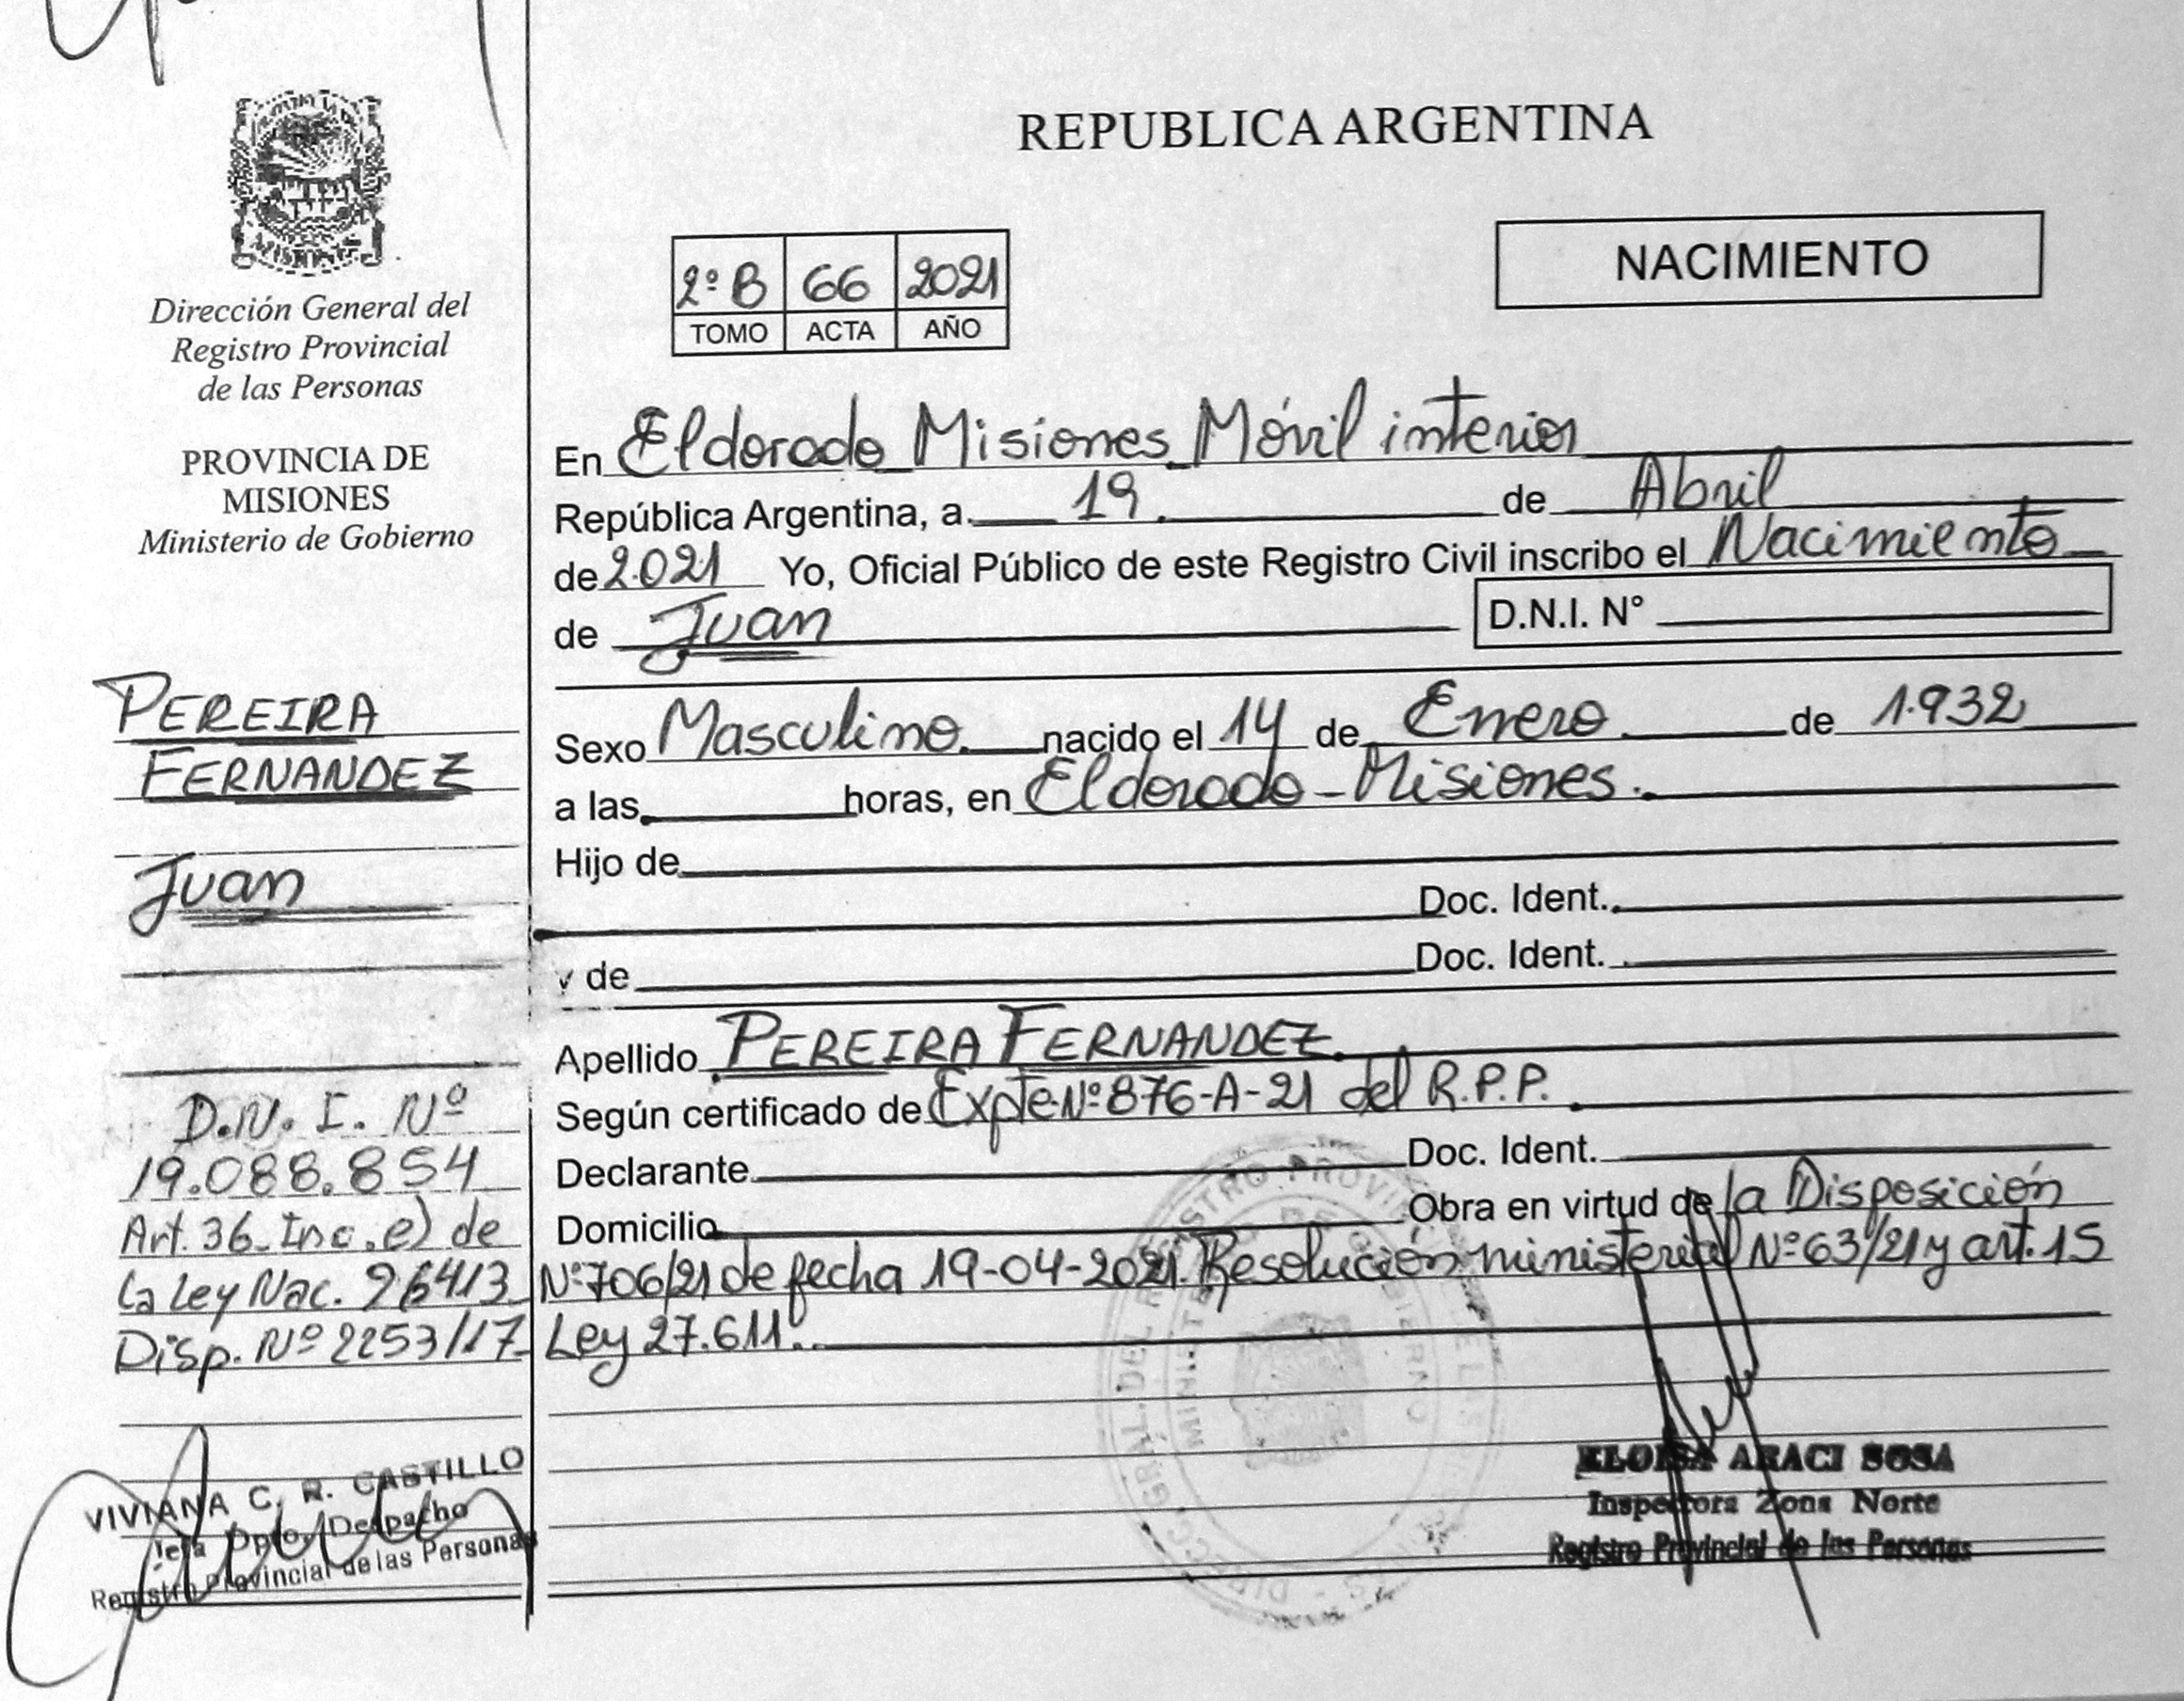 REPUBLICA ARGENTINA
NACIMIENTO
2º B 66 2021
TOMO ACTA AÑO
Dirección General del
Registro Provincial
de las Personas
PROVINCIA DE
MISIONES
Ministerio de Gobierno
PEREIRA
FERNANDEZ
Juan
D.N.I. Nº
19.088.854
Art. 36. Inc. e) de
la Ley Nac. 26413
Disp. Nº 2253/17
VIVIANA C. R. CASTILLO
Jefa Dpto. Despacho
Registro Provincial de las Personas
En Eldorado Misiones Móvil interior
República Argentina, a 19 de Abril
de 2.021 Yo, Oficial Público de este Registro Civil inscribo el Nacimiento
de Juan D.N.I. N°
Sexo Masculino nacido el 14 de Enero de 1.932
a las horas, en Eldorado - Misiones.
Hijo de
Doc. Ident.
y de Doc. Ident.
Apellido PEREIRA FERNANDEZ.
Según certificado de Expte Nº 876-A-21 del R.P.P.
Declarante Doc. Ident.
Domicilio Obra en virtud de la Disposición
Nº 706/21 de fecha 19-04-2021. Resolución ministerial Nº 63/21 y art. 15
Ley 27.611.
ELOISA ARACI SOSA
Inspectora Zona Norte
Registro Provincial de las Personas